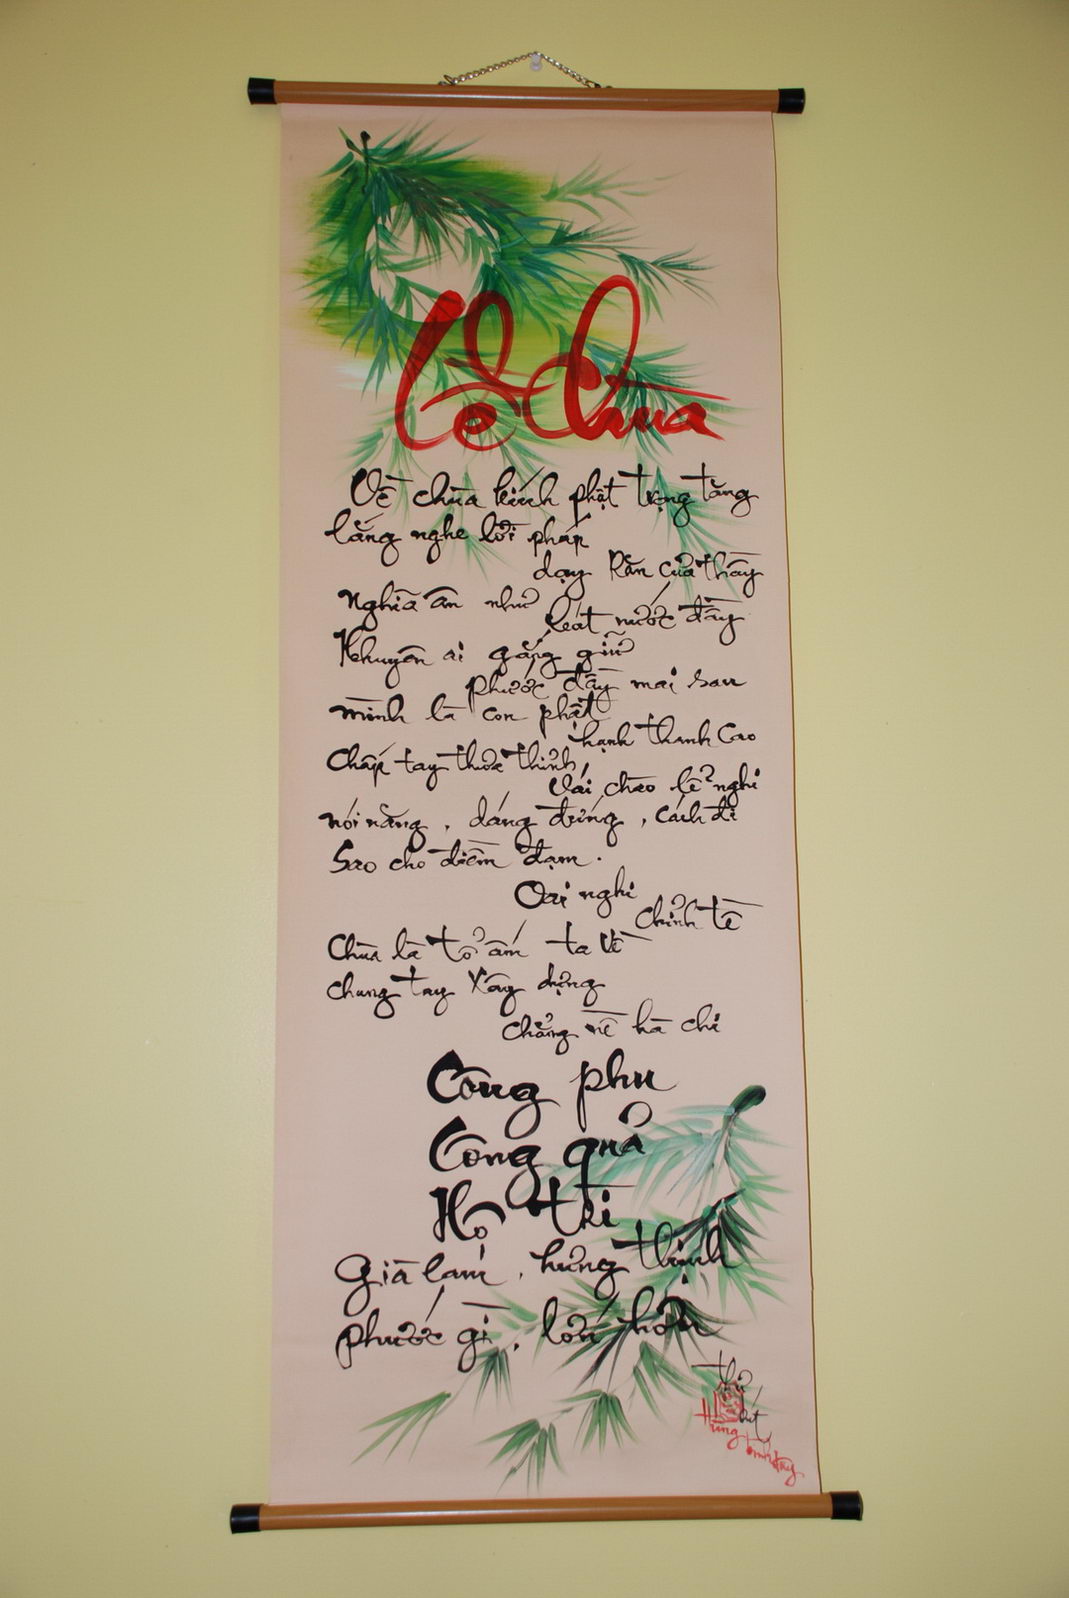 Về chùa kính phật trọng tăng
lắng nghe lời pháp
dạy Răn của thầy
Nghĩa ân như
bát nước đầy
Khuyên ai gắng giữ
phước đầy mai sau
mình là con phật
hạnh thanh Cao
Chấp tay thưa thỉnh,
Vái chào lể nghi
nói năng, dáng đứng, cách đi
Sao cho điềm đạm.
Oai nghi
chỉnh tề
Chùa là tổ ấm ta về
chung tay Xây dựng
chẳng nề hà chi
Công phu
Công quả
Hộ trì
Già lam, hưng thịnh
phước gì, lớn hơn
thư
bút
Hùng